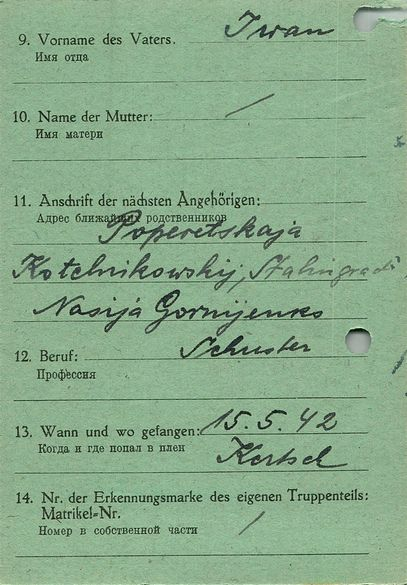 9. Vorname des Vaters. Iwan
Имя отца
10. Name der Mutter: /
Имя матери
11. Anschrift der nächsten Angehörigen:
Адрес ближайших родственников
Poperetskaja
Kotelnikowskij, Stalingrad
Nasija Gornijenko
12. Beruf: Schuster
Профессия
13. Wann und wo gefangen: 15.5.42
Когда и где попал в плен Kertsch
14. Nr. der Erkennungsmarke des eigenen Truppenteils:
Matrikel=Nr.
Номер в собственной части /